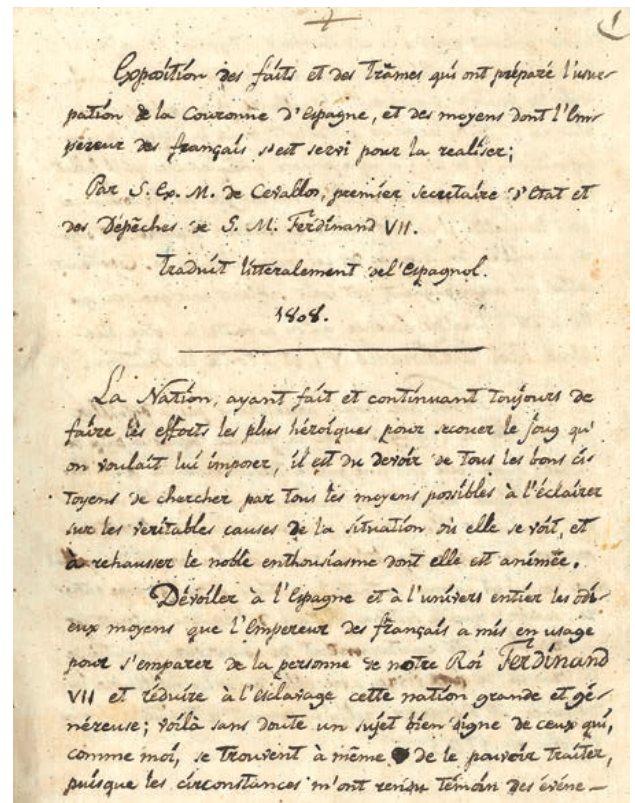 1
Exposition des faits et des trâmes qui ont préparé l'usur-
pation de la Couronne d'Espagne, et des moyens dont l'Em-
pereur des français s'est servi pour la realiser;
Par S. Ex. M. de Cevallos, premier secretaire d'Etat et
des Dépêches de S. M. Ferdinand VII.
Traduit litteralement de l'Espagnol.
1808.
La Nation, ayant fait et continuant toujours de
faire les efforts les plus héroïques pour secouer le joug qu'
on voulait lui imposer, il est du devoir de tous les bons ci-
toyens de chercher par tous les moyens possibles à l'éclairer
sur les veritables causes de la situation où elle se voit, et
à rehausser le noble enthousiasme dont elle est animée.
Dévoiler à l'Espagne et à l'univers entier les odi-
eux moyens que l'Empereur des français a mis en usage
pour s'emparer de la personne de notre Roi Ferdinand
VII et réduire à l'esclavage cette nation grande et gé-
néreuse; voilà sans doute un sujet bien digne de ceux qui,
comme moi, se trouvent à même de le pouvoir traiter,
puisque les circonstances m'ont rendu témoin des événe-